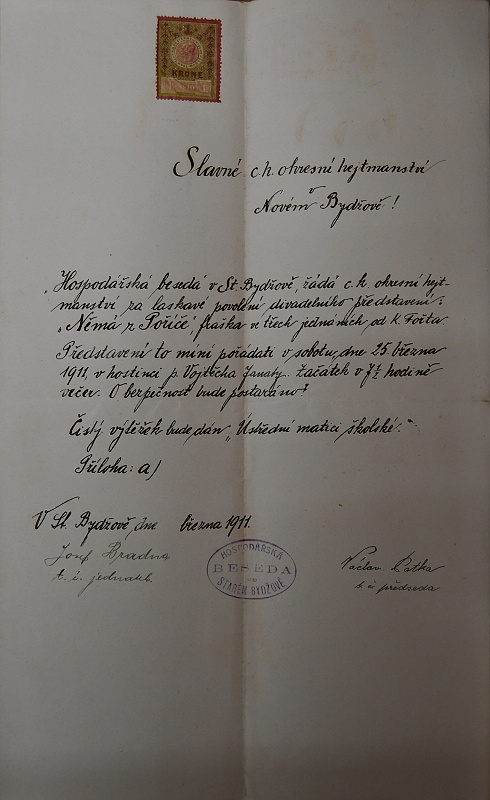 KRONE
Slavné c.k. okresní hejtmanství
v
Novém Bydžově!
„Hospodářská beseda v St. Bydžově, žádá c.k. okresní hejt-
manství za laskavé povolení divadelního představení:
„Němá z Poříčé, fraška ve třech jednáních od K. Fořta.
Představení to míní pořádati v sobotu, dne 25. března
1911, v hostinci p. Vojtěcha Janaty. Začátek v 7½ hodině
večer. O bezpečnost bude postaráno!
Čistý výtěžek bude dán „Ústřední matici školské."
Příloha: a)
V St. Bydžově, dne března 1911.
Josef Bradna
t. č. jednatel.
HOSPODÁŘSKÁ
BESEDA
VE
STARÉM BYDŽOVĚ
Václav
t. č. předseda